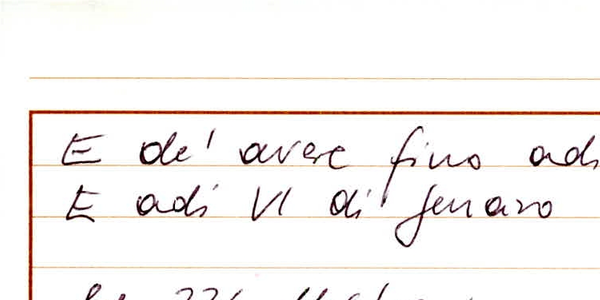 E de' avere fino adi
E adi VI di gennaro